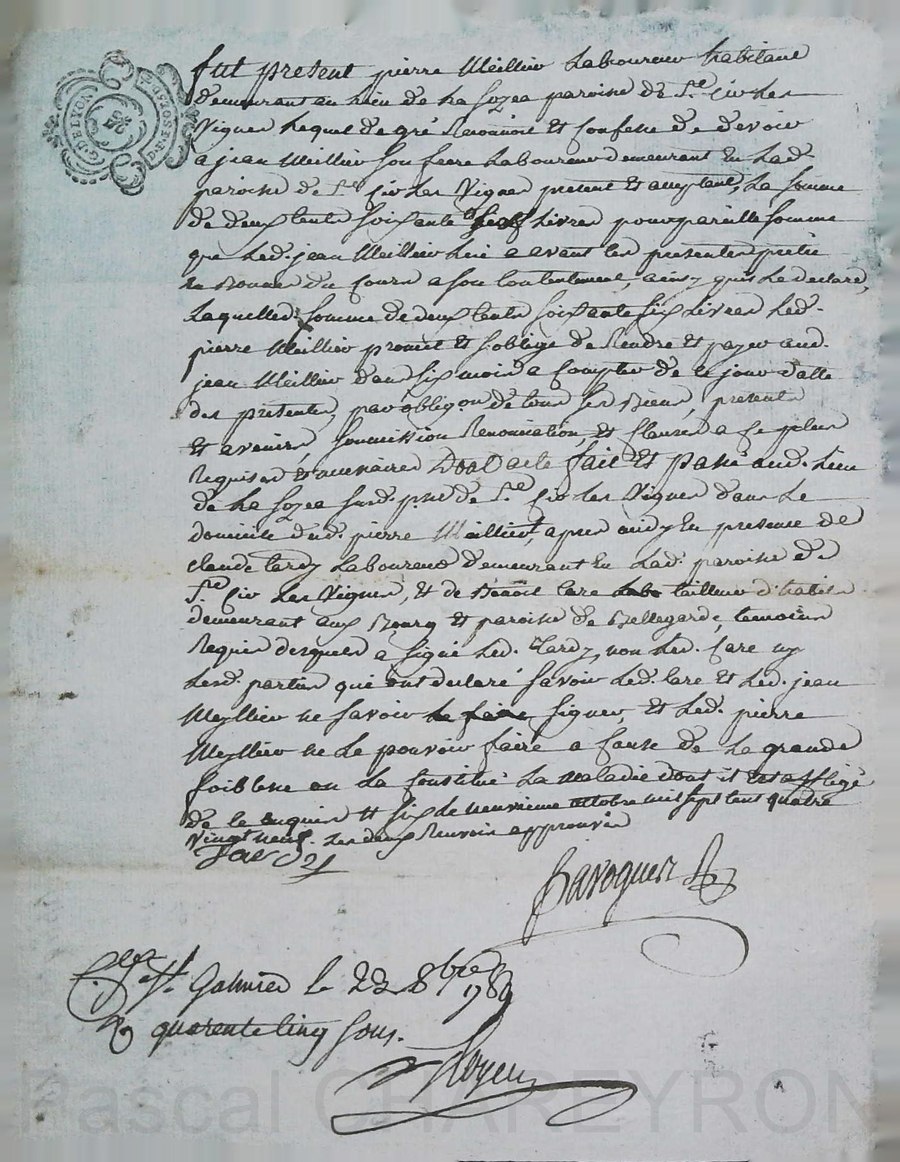 G. DE LYON
fut present pierre Meillier Laboureur habitant
demeurant au Lieu de La paroisse de St. Cir Les
Vignes Lequel de gré Reconnoit et Confesse de devoir
a jean Meillier son frere Laboureur demeurant en Lad.
paroisse de St. Cir Les Vignes present et acceptant, La somme
de deux cents soixante Livres pour pareille somme
que Led. jean Meillier Lui a avant les presentes preté
du Cours a son contentement, ainsy qu'il Le declare,
Laquelle d. somme de deux cents soixante six Livres Led.
pierre Meillier promet et s'oblige de Rendre et payer aud.
jean Meillier dans six mois a compter de ce jour datte
des presentes, par obligon de tous ses Biens, presents
et avenirs, soumission Renonciation, et Clauses a ce plus
Requises et necessaires Dont acte fait et passé aud. Lieu
de La sud. psse de St. Cir Les Vignes dans Le
domicile dud. pierre Meillier, apres midy en presence de
claude tardy Laboureur demeurant en Lad. paroisse de
St. Cir Les Vignes, et de Benoit Care tailleur d'habits
demeurant aux Bourg et paroisse de Bellegarde, temoins
Requis desquels a signé Led. Tardy, non Led. Care ny
Lesd. parties qui ont declaré savoir Led. Care et Led. jean
Meyllier ne savoir signer, et Led. pierre
Meyllier ne Le pouvoir faire a Cause de La grande
foiblesse ou La Constitué La maladie dont il est affligé
de ce enquis et Le neuvieme octobre mil sept cent quatre
vingt neuf. Les deux Renvois approuvés
Tardy
Baroquer
Clé a St. Galmier le 22 8bre 1789
R quarente cinq sous.
Pascal CHAREYRON